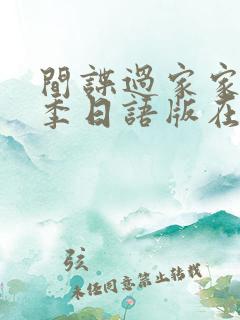 間諜過家家
季日語版在
弦
未经同意禁止转载